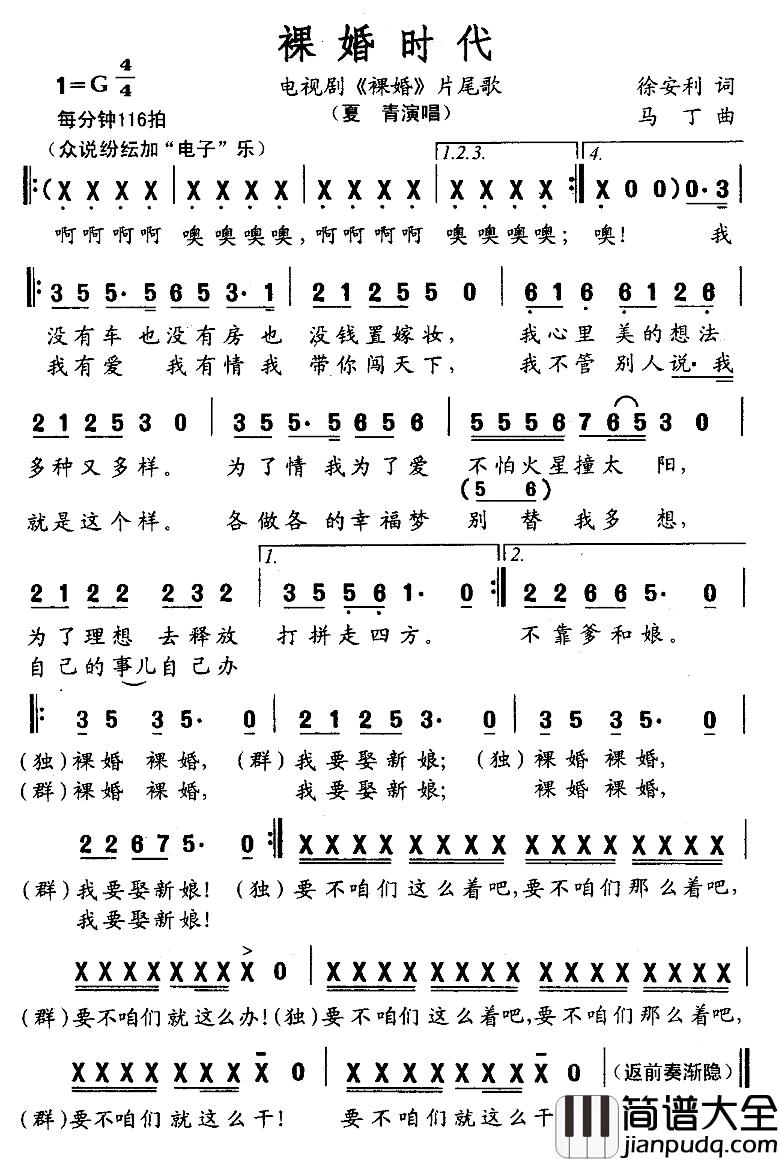 裸婚时代
1=G 4/4
电视剧《裸婚》片尾歌
徐安利 词
每分钟116拍
（夏 青演唱）
马 丁 曲
（众说纷纭加“电子”乐）
1.2.3. 4.
‖:（X X X X | X X X X | X X X X | X X X X :‖ X 0 0）0·3
啊啊啊啊 噢噢噢噢，啊啊啊啊 噢噢噢噢；噢！ 我
‖: 3 5 5· 5 6 5 3· 1 | 2 1 2 5 5 0 | 6 1 6 6 1 2 6 |
没有车 也没有房 也 没钱置嫁妆， 我心里 美的想法
我有爱 我有情我 带你闯天下， 我不管 别人说·我
2 1 2 5 3 0 | 3 5 5· 5 6 5 6 | 5 5 5 6 7 6 5 3 0 |
多种又多样。 为了情 我为了爱 不怕火星撞太 阳，
（5 6）
就是这个样。 各做各 的幸福梦 别 替 我多 想，
1. 2.
2 1 2 2 2 3 2 | 3 5 5 6 1· 0 :‖ 2 2 6 6 5· 0 |
为了理想 去释放 打拼走四方。 不靠爹和娘。
自己的事儿自己办
‖: 3 5 3 5· 0 | 2 1 2 5 3· 0 | 3 5 3 5· 0 |
（独）裸婚 裸婚，（群）我要娶新娘；（独）裸婚 裸婚，
（群）裸婚 裸婚， 我要娶新娘； 裸婚 裸婚，
2 2 6 7 5· 0 :‖ X X X X X X X X X X X X X X X X |
（群）我要娶新娘！（独）要不咱们这么着吧，要不咱们那么着吧，
我要娶新娘！
X X X X X X X X 0 | X X X X X X X X X X X X X X X X |
（群）要不咱们就这么办！（独）要不咱们这么着吧，要不咱们那么着吧，
X X X X X X X X 0 | X X X X X X X X 0 |（返前奏渐隐）‖
（群）要不咱们就这么干！ 要不咱们就这么干
简谱大全
jianpudq.com